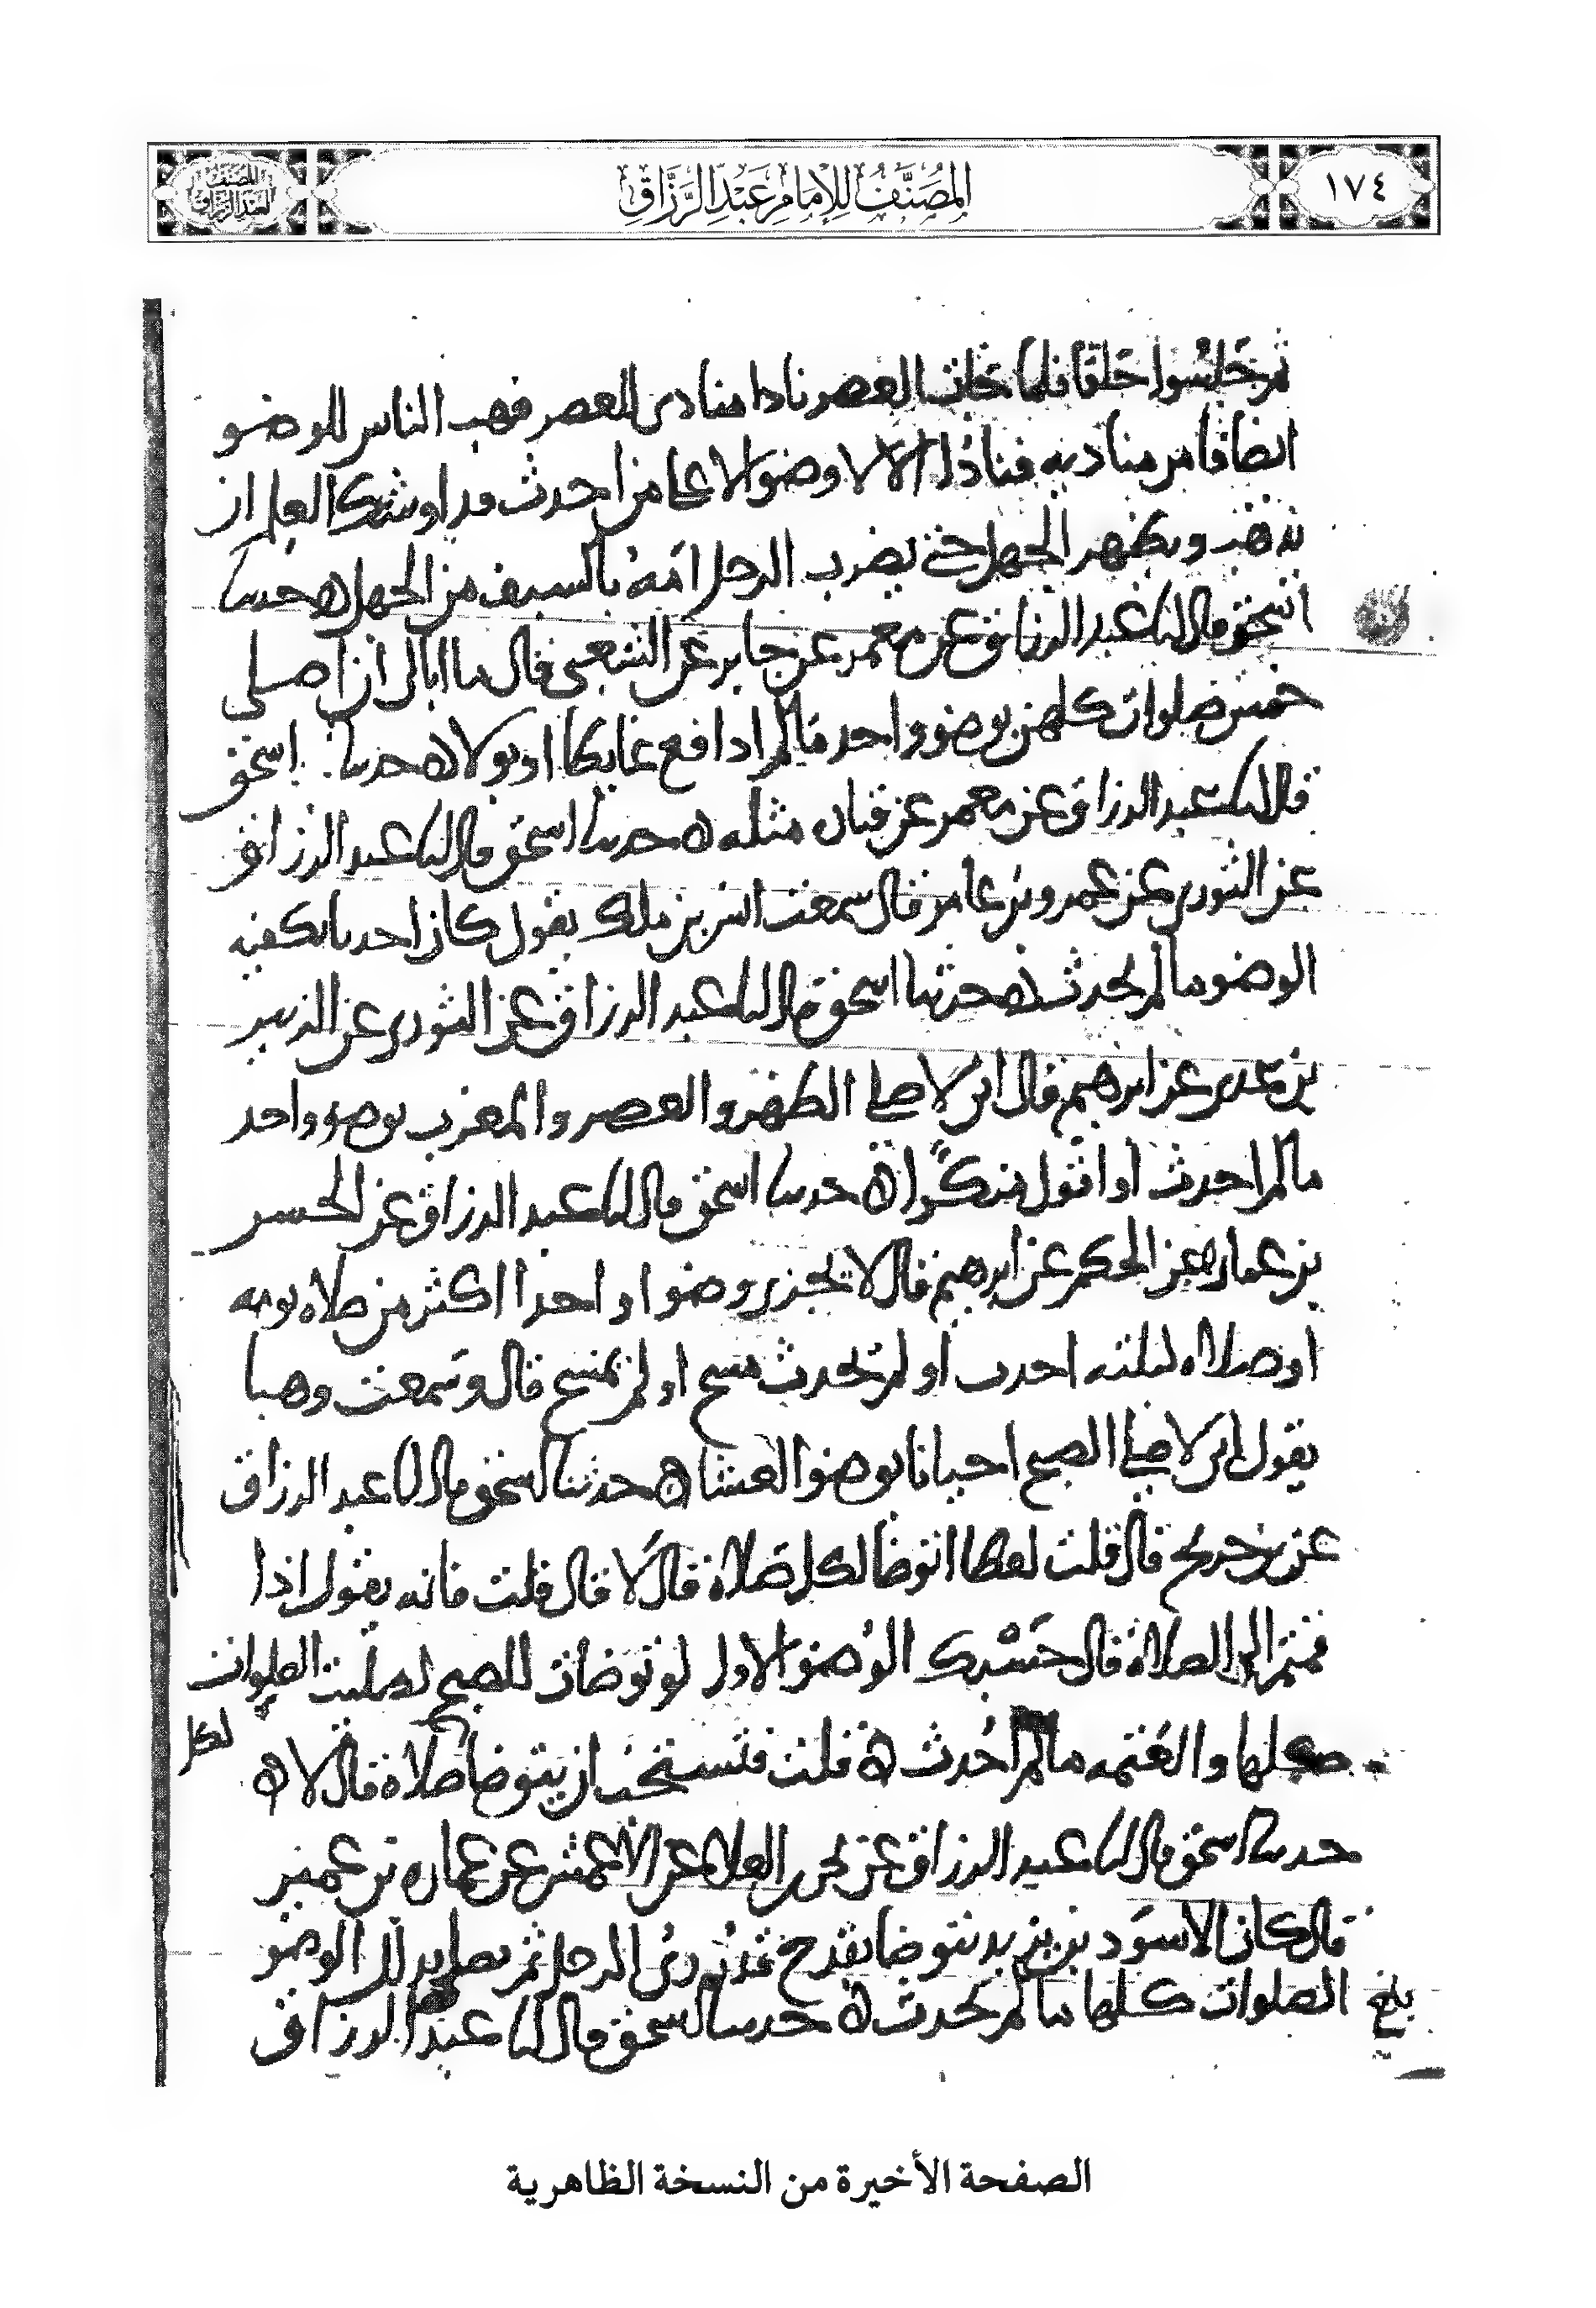 ١٧٤
المُصَنَّفُ لِلإمَامِ عَبْدِ الرَّزَّاقِ
المصنف لعبد الرزاق
ثم جلسوا حلقا فلما جات العصر نادا منادى العصر فهب الناس للوضو
ايضا فامر مناديه فنادى الا لا وضو الا على من احدث قد اوشك العلم ان
يذهب ويظهر الجهل حتى يضرب الرجل امه بالسيف من الجهل ه حدثنا
اسحق قال انا عبد الرزاق عن معمر عن جابر عن الشعبي قال ما ابالى ان اصلي
خمس صلوات كلهن بوضو واحد ما لم ادافع غايطا او بولا ه حدثنا اسحق
قال انا عبد الرزاق عن معمر عن قتاده مثله ه حدثنا اسحق قال انا عبد الرزاق
عن الثوري عن عمرو بن عامر قال سمعت انس بن ملك يقول كان احدنا يكفيه
الوضو ما لم يحدث ه حدثنا اسحق قال انا عبد الرزاق عن الثوري عن الزبير
بن عدي عن ابرهيم قال اني لاصلي الظهر والعصر والمغرب بوضو واحد
ما لم احدث او اقول منكرا ه حدثنا اسحق قال انا عبد الرزاق عن الحسن
بن عماره عن الحكم عن ابرهيم قال لا يجزي وضوا واحدا اكثر من صلاه يومه
او صلاه ليلته احدث او لم يحدث مسح او لم يمسح قال وسمعت وهبا
يقول اني لاصلي الصبح احيانا بوضو العشا ه حدثنا اسحق قال انا عبد الرزاق
عن بن جريج قال قلت لعطا اتوضا لكل صلاة قال لا قال قلت فانه يقول اذا
قمتم الى الصلاة قال حسبك الوضو الاول لو توضات للصبح لصليت الصلوات
كلها والعتمه ما لم احدث ه قلت فتستحب ان يتوضا لكل صلاة قال لا ه
حدثنا اسحق قال انا عبد الرزاق عن يحيى بن العلا عن الاعمش عن عماره بن عمير
قال كان الاسود بن يزيد يتوضا بقدح قدر ري الرجل ثم يصلي بذلك الوضو
الصلوات كلها ما لم يحدث ه حدثنا اسحق قال انا عبد الرزاق
بلغ
الصفحة الأخيرة من النسخة الظاهرية